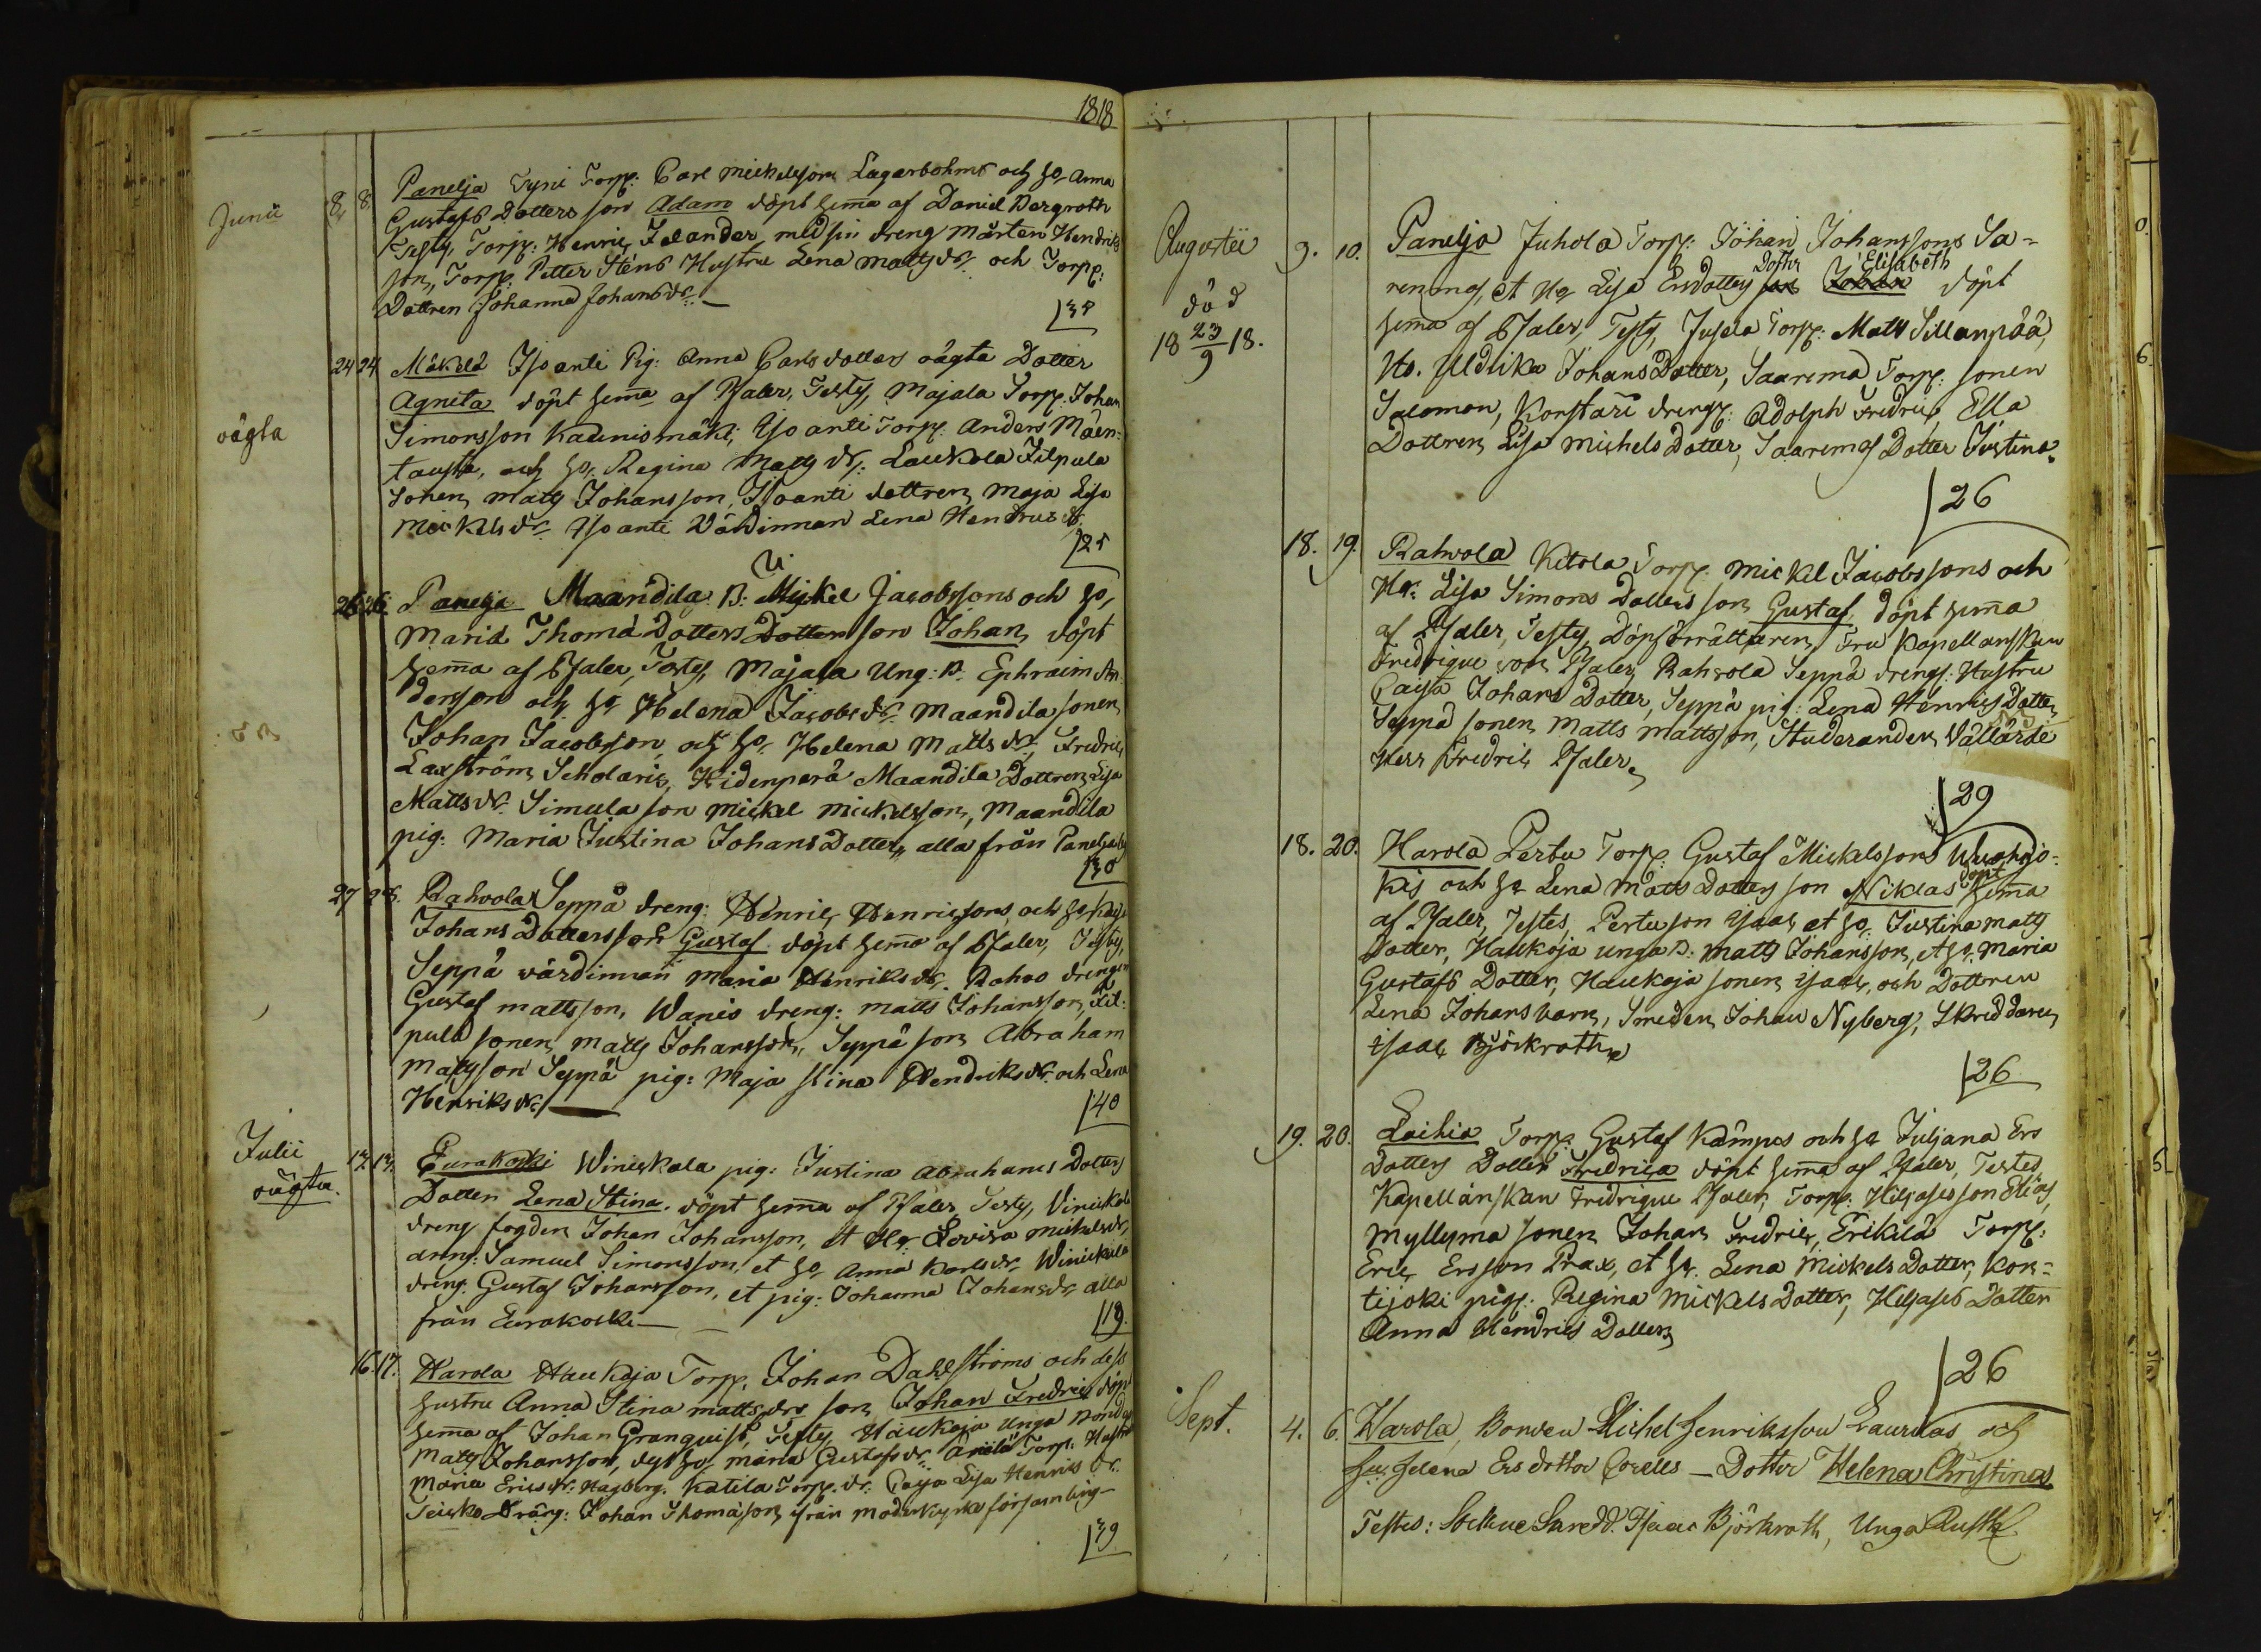 1818
Junii 8. 8. Panelja Torp: Carl Mickelsson Lagerbohms och ho, Anna
Gustafs Dotters son Adam döpt hema af Daniel Bergroth
Torp: Henric Jelander med sin dreng Mårten Hendriks
son, Torp: Petter Sténs Hustru Lena Matts dr. och Torp:
Dottren Johanna Johans dr.
24 24 Mäkelä Isoanti Pig: Anna Carls dotters oägta Dotter
oägta
Agneta döpt hema af Psaler, Testes, Majala Torp. Johan
Simonsson Kaunismäki, Isoanti Torp: Anders Mäen-
tausta, och ho, Regina Matts dr. Laukola Filpula
Sonen Matts Johansson, Isoanti dottren Maja Lisa
Mickels dr. Isoanti Värdinnan Lena Henrics dr.
26 26. Panelja Maandila B: Mickel Jacobssons och ho,
Maria Thoma Dotters Dotter son Johan, döpt
hema af Psaler, Testes, Majala Ung: B. Ephraim An-
dersson och ho Helena Jacobs dr. Maandila sonen
Johan Jacobsson och ho, Helena Matts dr. Fredric
Laxström, Scholaris, Hidenperä Maandila Dottren Lisa
Matts dr. Simula son Mickel Mickelsson, Maandila
pig: Maria Justina Johans Dotter, alla från Panelja by
30
27 28. Rahvola Seppä dreng: Henric Henricsons och ho Caisa
Johans Dotters son Gustaf döpt hema af Psaler, Testes,
Seppä värdinnan Maria Henriks dr. Rahvo drengen
Gustaf Mattsson, Wanio dreng: Matts Johansson, Fil-
pula sonen Matts Johansson, Seppä son Abraham
Mattsson Seppä pig: Maja Stina Hendriks dr. och Lena
Henriks dr.
40
Julii 13. 13. Eurakoski Winickala pig: Justina Abrahams Dotters
oägta.
Dotter Lena Stina. döpt hema af Psaler, Testes, Vinickala
dreng fogden Johan Johansson, et Ho: Lovisa Mickels dr,
dreng: Samuel Simonsson, et ho, Anna Karls dr. Winickala
dreng. Gustaf Johansson, et pig: Johanna Johans dr. alla
från Eurakoski
19.
16. 17. Harola Haukoja Torp. Johan Dahlströms och dess
hustru Anna Stina Matts drs son Johan Fredric döpt
hema af Johan Granquist, Testes, Haukoja Unga Bonden
Matts Johansson, dess ho, Maria Gustafs dr. Anila Torp: Hustru
Maria Erics dr. Hagberg. Katila Torp. dr. Caisa Lisa Henrics dr.
Teisko Dräng: Johan Thomasson från Moderkyrko församling
39
Augustii 9. 10. Panelja Juhola Torp: Johan Johanssons Sa-
död
18 23/9 18.
renmas, et Ho Lisa Ersdotters son Johan Dottr Elisabeth döpt
hema af Psaler, Testes, Jusela Torp: Matts Sillanpää,
Ho. Uldrika Johans Dotter, Saarema Torp: sonen
Salomon, Konstari drengs: Adolph Fredric, Ella
Dottren Lisa Michels Dotter, Saaremas Dotter Justina.
26
18. 19. Rahvola Ketola Torp: Mickel Jacobssons och
Ho: Lisa Simons Dotters son Gustaf döpt hema
af Psaler, Testes, Döpförrättaren, Fru Kapellanskan
Fredrique von Psaler, Rahvola Seppä drengs: Hustru
Caisa Johans Dotter, Seppä pig: Lena Henrics Dotter,
Seppä sonen Matts Mattsson, Studeranden Vällärde
Herr Fredric Psaler.
29
18. 20. Harola Pertu Torp: Gustaf Mickelssons
kis och ho Lena Matts Dotters son Niklas döpt hema
af Psaler, Testes, Pertu son Isaac et ho. Justina Matts
Dotter, Haukoja unga B. Matts Johansson, et ho. Maria
Gustafs Dotter, Haukoja sonen Isaac, och Dottren
Lena Johans barn, Smeden Johan Nyberg, Skreddaren
Isaac Björkroth
26
19. 20. Laihia Torp: Gustaf Kämpes och ho Juljana Ers
Dotters Dotter Fredrica döpt hema af Psaler, Testes
Kapellanskan Fredrique Psaler, Torp: Hiljases son Elias,
Myllyma sonen Johan Fredric, Erikilä Torp:
Eric Ersson Prax, et ho. Lena Mickels Dotter, Kon-
tijoki pigs: Regina Mickels Dotter, Hiljases Dotter
Anna Hendrics Dotter
26
Sept. 4. 6. Harola, Bonden Michel Henriksson Laurikas och
hu. Helena Ers dotter Corells — Dotter Helena Christina
Testes: Skredd. Isaac Björkroth, Unga